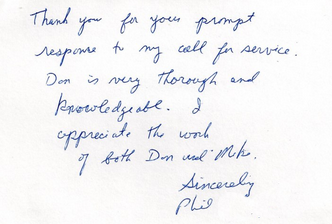 Thank you for your prompt
response to my call for service.
Don is very thorough and
knowledgeable. I
appreciate the work
of both Don and Mike.
Sincerely
Phil